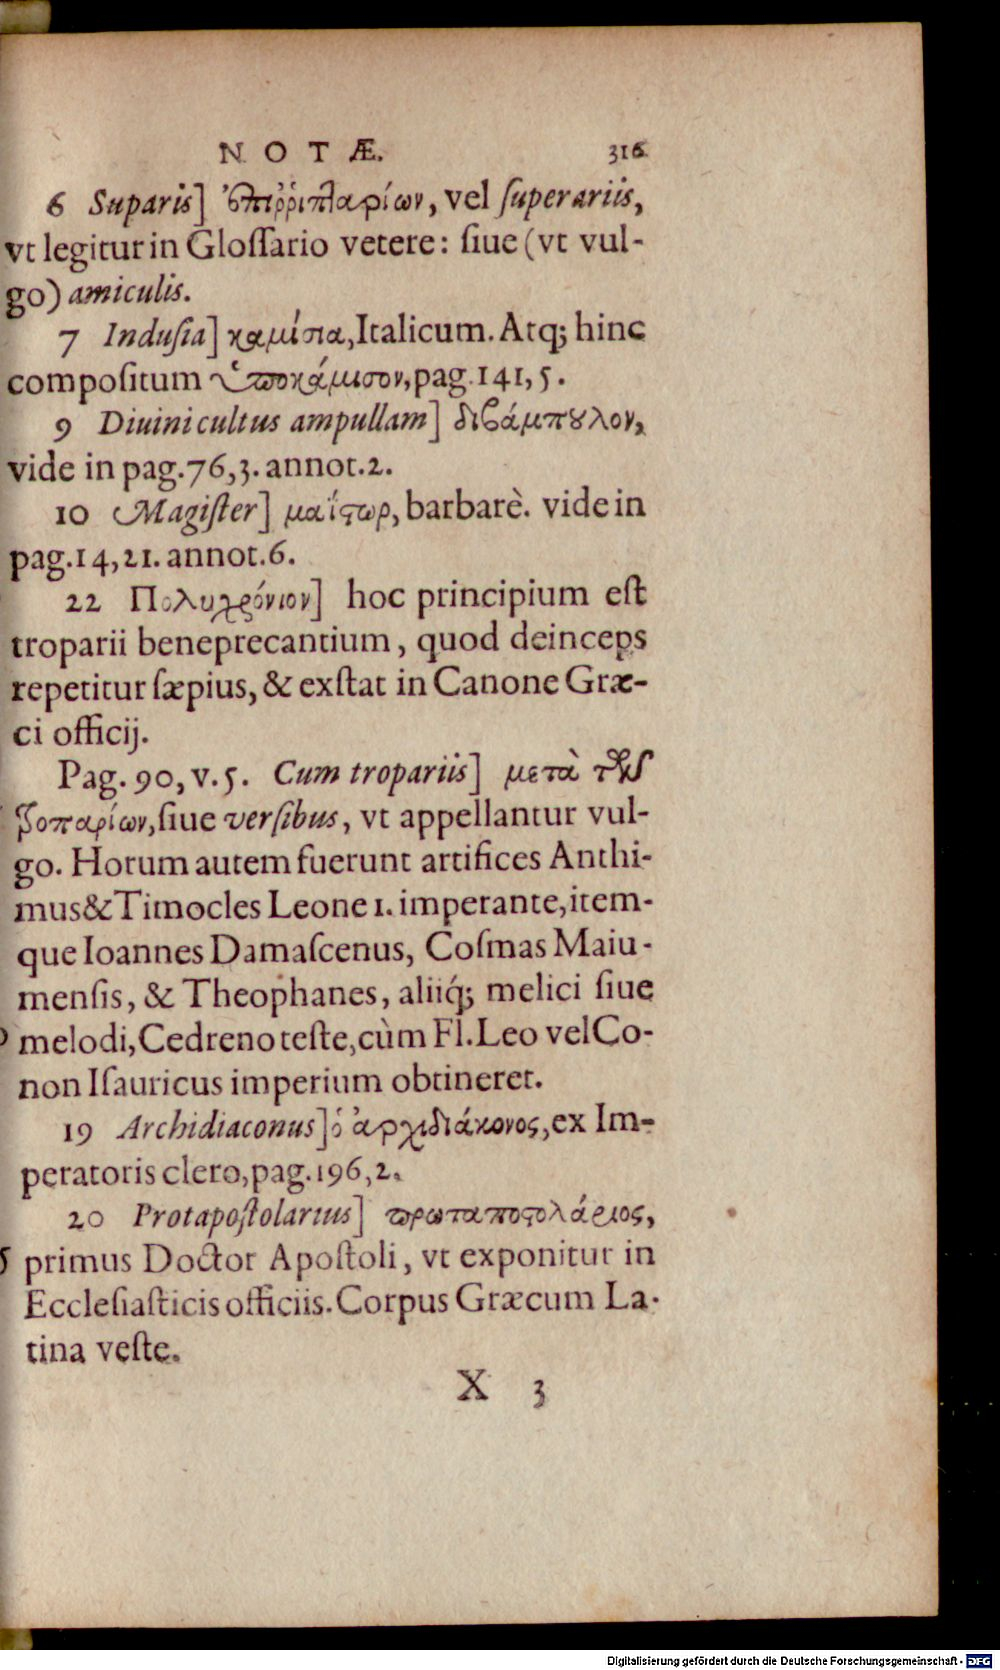 NOTÆ. 316
6 Suparis] ἐπιῤῥιπλαρίων, vel ſuperariis,
vt legitur in Gloſſario vetere: ſiue (vt vul-
go) amiculis.
7 Induſia] καμίσια, Italicum. Atq; hinc
compoſitum ὑποκάμισον, pag. 141, 5.
9 Diuini cultus ampullam] διβάμπουλον,
vide in pag. 76, 3. annot. 2.
10 Magiſter] μαΐστωρ, barbarè. vide in
pag. 14, 21. annot. 6.
22 Πολυχρόνιον] hoc principium eſt
troparii beneprecantium, quod deinceps
repetitur ſæpius, & exſtat in Canone Græ-
ci officij.
Pag. 90, v. 5. Cum tropariis] μετὰ τῶν
τροπαρίων, ſiue verſibus, vt appellantur vul-
go. Horum autem fuerunt artifices Anthi-
mus & Timocles Leone 1. imperante, item-
que Ioannes Damaſcenus, Coſmas Maiu-
menſis, & Theophanes, aliiq́; melici ſiue
melodi, Cedreno teſte, cùm Fl. Leo vel Co-
non Iſauricus imperium obtineret.
19 Archidiaconus] ὁ ἀρχιδιάκονος, ex Im-
peratoris clero, pag. 196, 2.
20 Protapoſtolarius] πρωταποστολάριος,
primus Doctor Apoſtoli, vt exponitur in
Eccleſiaſticis officiis. Corpus Græcum La-
tina veſte.
X 3
Digitalisierung gefördert durch die Deutsche Forschungsgemeinschaft - DFG